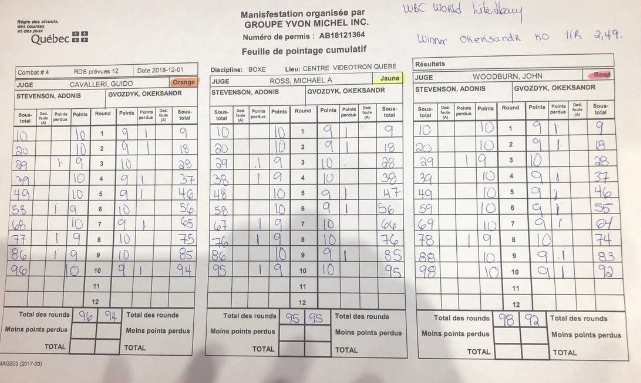 Régie des alcools,
des courses
et des jeux
Québec
Manisfestation organisée par
GROUPE YVON MICHEL INC.
Numéro de permis : AB18121364
Feuille de pointage cumulatif
WBC World
Winner Oleksandr KO 11R 2,49.
Combat # 4 RDS prévues 12 Date 2018-12-01
Discipline: BOXE Lieu: CENTRE VIDEOTRON QUÉBE
Résultats
JUGE CAVALLERI, GUIDO Orange
STEVENSON, ADONIS GVOZDYK, OKEKSANDR
Sous-total Déd. faute (A) Points perdus Points Round Points Points perdus Sous-total
10 10 1 9 1 9
20 10 2 9 1 18
29 1 9 3 10 28
39 10 4 9 1 37
49 10 5 9 1 46
58 1 9 6 10 56
68 10 7 9 1 65
77 1 9 8 10 75
86 1 9 9 10 85
96 10 10 9 1 94
11
12
Total des rounds 96 94
Moins points perdus
TOTAL
JUGE ROSS, MICHAEL A Jaune
STEVENSON, ADONIS GVOZDYK, OKEKSANDR
Sous-total Déd. faute (A) Points perdus Points Round Points Points perdus Sous-total
10 10 1 9 1 9
20 10 2 9 1 18
29 1 9 3 10 28
38 1 9 4 10 38
48 10 5 9 1 47
58 10 6 9 1 56
67 1 9 7 10 66
76 1 9 8 10 76
86 10 9 9 1 85
95 1 9 10 10 95
11
12
Total des rounds 95 95
Moins points perdus
TOTAL
JUGE WOODBURN, JOHN Rose
STEVENSON, ADONIS GVOZDYK, OKEKSANDR
Sous-total Déd. faute (A) Points perdus Points Round Points Points perdus Sous-total
10 10 1 9 1 9
20 10 2 9 1 18
29 1 9 3 10 28
39 10 4 9 1 37
49 10 5 9 1 46
59 10 6 9 1 55
69 10 7 9 1 64
78 1 9 8 10 74
88 10 9 9 1 83
98 10 10 9 1 92
11
12
Total des rounds 98 92
Moins points perdus
TOTAL